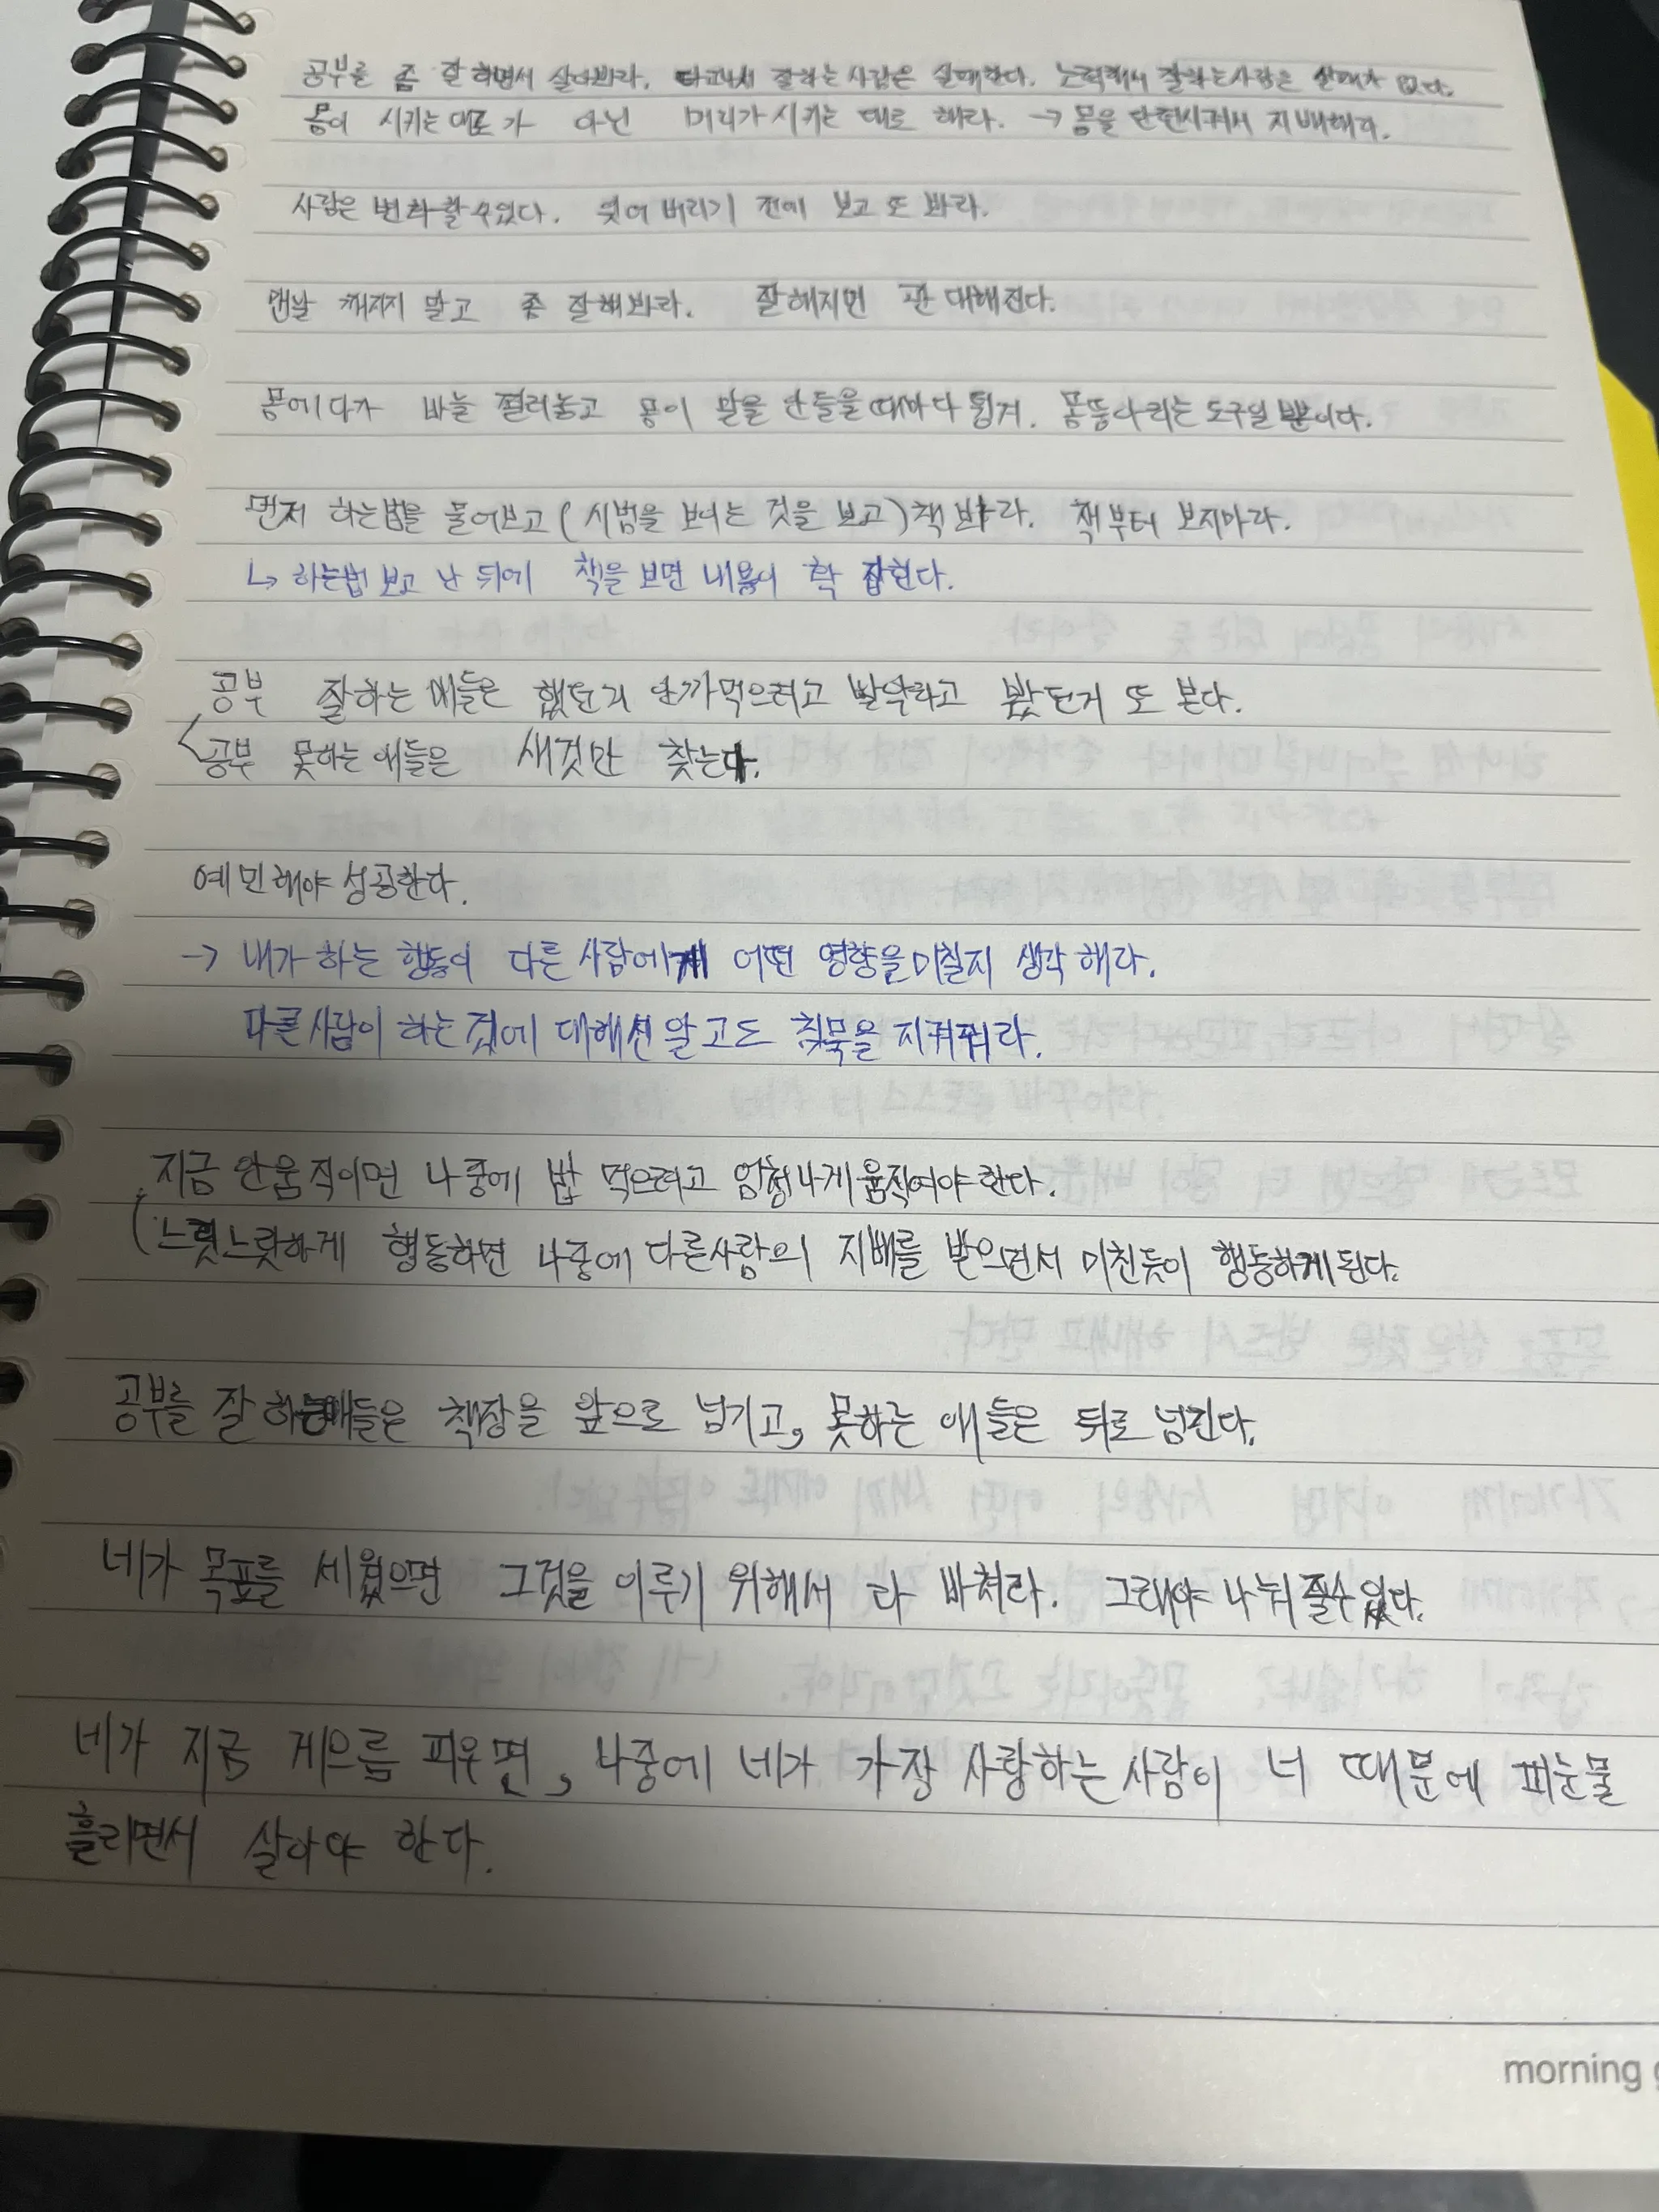 공부를 좀 잘하면서 살아봐라. 타고나서 잘하는 사람은 실패한다. 노력해서 잘하는사람은 실패가 없다.
몸이 시키는대로가 아닌 머리가 시키는 대로 해라. → 몸을 단련시켜서 지배해라.
사람은 변화할수있다. 잊어버리기 전에 보고 또 봐라.
맨날 깨지지 말고 좀 잘해봐라. 잘해지면 관대해진다.
몸에다가 바늘 찔러놓고 몸이 말을 안들을때마다 튕겨. 몸뚱아리는 도구일뿐이다.
먼저 하는법을 물어보고(시범을 보이는 것을 보고) 책 봐라. 책부터 보지마라.
↳ 하는법 보고 난 뒤에 책을 보면 내용이 확 잡힌다.
공부 잘하는 애들은 했던거 안까먹으려고 발악하고 봤던거 또 본다.
공부 못하는 애들은 새것만 찾는다.
예민해야 성공한다.
→ 내가 하는 행동이 다른 사람에게 어떤 영향을 미칠지 생각해라.
다른사람이 하는 것에 대해선 알고도 침묵을 지켜줘라.
지금 안움직이면 나중에 밥 먹으려고 엄청나게 움직여야한다.
느릿느릿하게 행동하면 나중에 다른사람의 지배를 받으면서 미친듯이 행동하게된다.
공부를 잘하는애들은 책장을 앞으로 넘기고, 못하는 애들은 뒤로 넘긴다.
네가 목표를 세웠으면 그것을 이루기 위해서 다 바쳐라. 그래야 나눠줄수있다.
네가 지금 게으름 피우면, 나중에 네가 가장 사랑하는 사람이 너 때문에 피눈물
흘리면서 살아야 한다.
morning